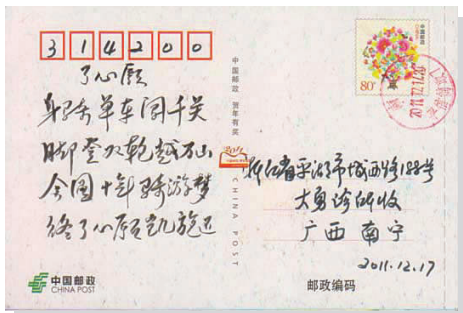 314200
了心愿
身骑单车闯千关
脚登双轮越万山
今圆十年骑游梦
终了心愿凯旋还
中国邮政 贺年有奖
CHINA POST
80分
2011.12.17
浙江省平湖市城西路188号
大勇诊所收
广西 南宁
2011.12.17
中国邮政
CHINA POST
邮政编码